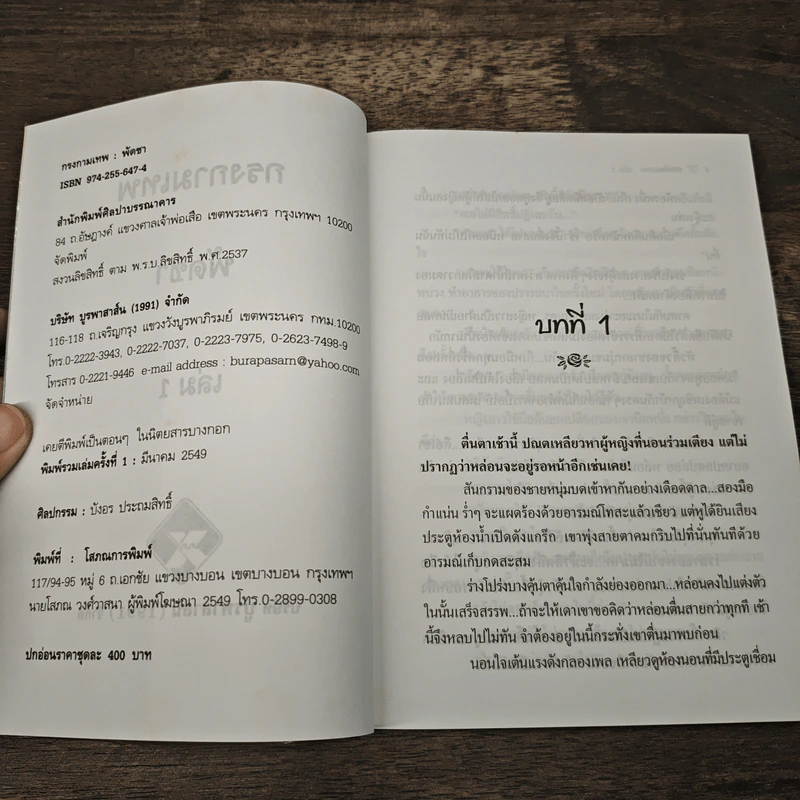 กรงกามเทพ : พัดชา
ISBN 974-255-647-4
สำนักพิมพ์ศิลปาบรรณาคาร
84 ถ.อัษฎางค์ แขวงศาลเจ้าพ่อเสือ เขตพระนคร กรุงเทพฯ 10200
จัดพิมพ์
สงวนลิขสิทธิ์ ตาม พ.ร.บ.ลิขสิทธิ์ พ.ศ.2537
บริษัท บูรพาสาส์น (1991) จำกัด
116-118 ถ.เจริญกรุง แขวงวังบูรพาภิรมย์ เขตพระนคร กทม.10200
โทร.0-2222-3943, 0-2222-7037, 0-2223-7975, 0-2623-7498-9
โทรสาร 0-2221-9446 e-mail address : burapasarn@yahoo.com
จัดจำหน่าย
เคยตีพิมพ์เป็นตอนๆ ในนิตยสารบางกอก
พิมพ์รวมเล่มครั้งที่ 1 : มีนาคม 2549
ศิลปกรรม : บังอร ประถมสิทธิ์
พิมพ์ที่ : โสภณการพิมพ์
117/94-95 หมู่ 6 ถ.เอกชัย แขวงบางบอน เขตบางบอน กรุงเทพฯ
นายโสภณ วงศ์วาสนา ผู้พิมพ์โฆษณา 2549 โทร.0-2899-0308
ปกอ่อนราคาชุดละ 400 บาท
บทที่ 1
ตื่นตาเช้านี้ ปณตเหลียวหาผู้หญิงที่นอนร่วมเตียง แต่ไม่
ปรากฏว่าหล่อนจะอยู่รอหน้าอีกเช่นเคย!
สันกรามของชายหนุ่มบดเข้าหากันอย่างเดือดดาล...สองมือ
กำแน่น ร่ำๆ จะแผดร้องด้วยอารมณ์โทสะแล้วเชียว แต่หูได้ยินเสียง
ประตูห้องน้ำเปิดดังแกร๊ก เขาพุ่งสายตาคมกริบไปที่นั่นทันทีด้วย
อารมณ์เก็บกดสะสม
ร่างโปร่งบางคุ้นตาคุ้นใจกำลังย่องออกมา...หล่อนคงไปแต่งตัว
ในนั้นเสร็จสรรพ...ถ้าจะให้เดาเขาขอคิดว่าหล่อนตื่นสายกว่าทุกที เช้า
นี้จึงหลบไปไม่ทัน จำต้องอยู่ในนี้กระทั่งเขาตื่นมาพบก่อน
นอนใจเต้นแรงดังกลองเพล เหลียวดูห้องนอนที่มีประตูเชื่อม